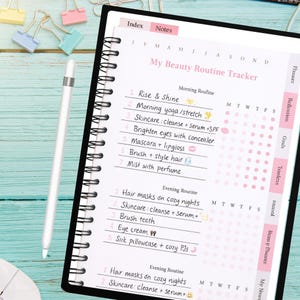 Index Notes
J F M A M J J A S O N D
My Beauty Routine Tracker
Morning Routine
M T W T F S
1 Rise & Shine
2 Morning yoga/stretch
3 Skincare: cleanse + serum + SPF
4 Brighten eyes with concealer
5 Mascara + lipgloss
6 Brush + style hair
7 Mist with perfume
Evening Routine
M T W T F S
1 Hair masks on cozy nights
2 Skincare: cleanse + serum +
3 Brush teeth
4 Eye cream
5 Silk pillowcase + cozy PJs
Evening Routine
M T W T F S
1 Hair masks on cozy nights
2 Skincare: cleanse + serum +
Planner
Goals
Trackers
Journal